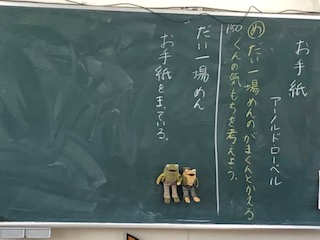 お手紙
アーノルド・ローベル
め だい一場めんのがまくんとかえる
くんの気もちを考えよう。
150
だい一場めん
お手紙をまっている。